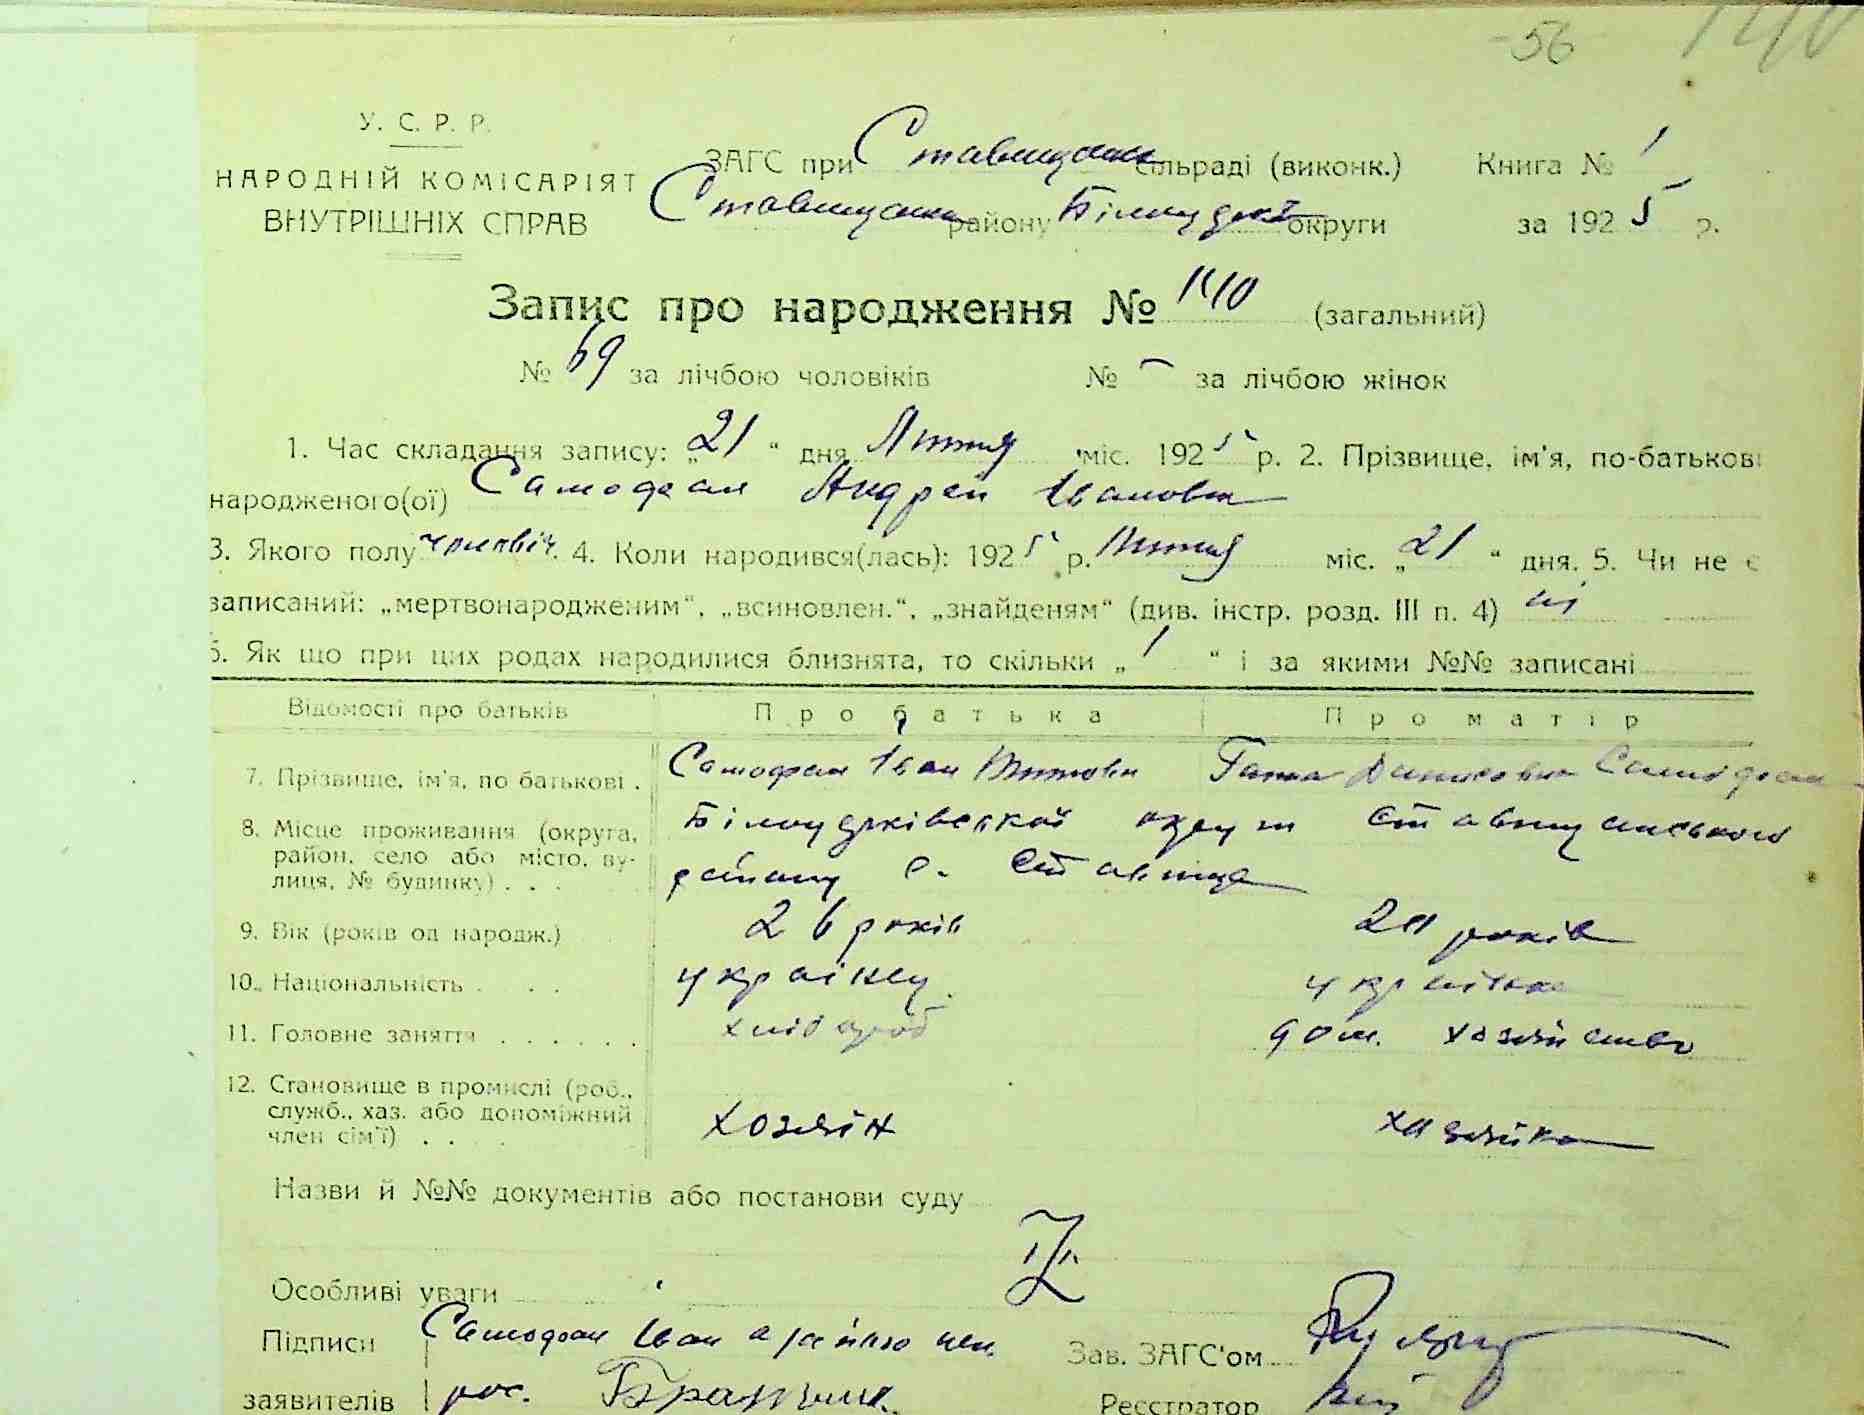 56 140
У. С. Р. Р.
НАРОДНІЙ КОМІСАРІЯТ
ВНУТРІШНІХ СПРАВ
ЗАГС при Ставищанск сільраді (виконк.) Книга № 1
Ставищанск району Білоцеркі округи за 1925 р.
Запис про народження № 140 (загальний)
№ 69 за лічбою чоловіків № – за лічбою жінок
1. Час складання запису: „21“ дня Лютня міс. 1925 р. 2. Прізвище, ім'я, по-батькові
народженого(ої) Самофал Андрей Іванович
3. Якого полу чоловіч. 4. Коли народився(лась): 1925 р. Лютня міс. „21“ дня. 5. Чи не є
записаний: „мертвонародженим“, „всиновлен.“, „знайденям“ (див. інстр. розд. III п. 4) ні
6. Як що при цих родах народилися близнята, то скільки „1“ і за якими №№ записані
Відомості про батьків Про батька Про матір
7. Прізвище, ім'я, по батькові . Самофал Іван Ганна Денисовна Самофал
8. Місце проживання (округа, район, село або місто, вулиця, № будинку) . . . Білоцерківської округи Ставищанського
району с. Ставище
9. Вік (років од народж.) 26 років років
10. Національність . . . українец українка
11. Головне заняття . . . . . . хлібороб дом. хозяйство
12. Становище в промислі (роб., служб., хаз. або допоміжний член сім'ї) . . . . хозяїн хазяйка
Назви й №№ документів або постанови суду
Z
Особливі уваги
Підписи Самофал Іван а за його неп.
заявителів рос.
Зав. ЗАГС'ом
Реєстратор